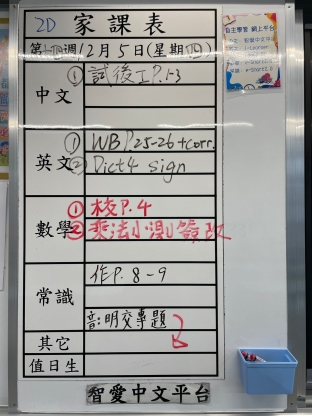 2D 家課表
第十四週12月5日(星期四)
中文 ①試後工P.1-3
英文 ①WB P.25-26+corr.
②Dict4 sign
數學 ①校P.4
②乘法小測簽改
常識 作P.8-9
音:明交專題
其它
值日生
智愛中文平台
自主學習 網上平台
智愛中文平台